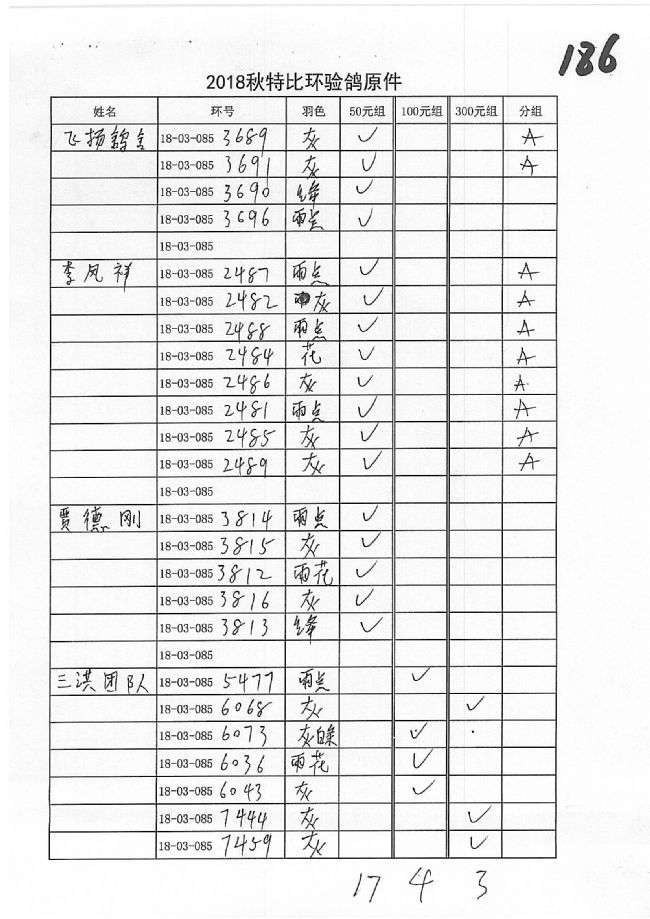 186
2018秋特比环验鸽原件
姓名 环号 羽色 50元组 100元组 300元组 分组
飞扬鸽舍 18-03-085 3689 灰 ✓ A
18-03-085 3691 灰 ✓ A
18-03-085 3690 绛 ✓
18-03-085 3696 雨点 ✓
18-03-085
李凤祥 18-03-085 2487 雨点 ✓ A
18-03-085 2482 灰 ✓ A
18-03-085 2488 雨点 ✓ A
18-03-085 2484 花 ✓ A
18-03-085 2486 灰 ✓ A
18-03-085 2481 雨点 ✓ A
18-03-085 2485 灰 ✓ A
18-03-085 2489 灰 ✓ A
18-03-085
贾德刚 18-03-085 3814 雨点 ✓
18-03-085 3815 灰 ✓
18-03-085 3812 雨花 ✓
18-03-085 3816 灰 ✓
18-03-085 3813 绛 ✓
18-03-085
三洪团队 18-03-085 5477 雨点 ✓
18-03-085 6068 灰 ✓
18-03-085 6073 灰白条 ✓
18-03-085 6036 雨花 ✓
18-03-085 6043 灰 ✓
18-03-085 7444 灰 ✓
18-03-085 7459 灰 ✓
17 4 3